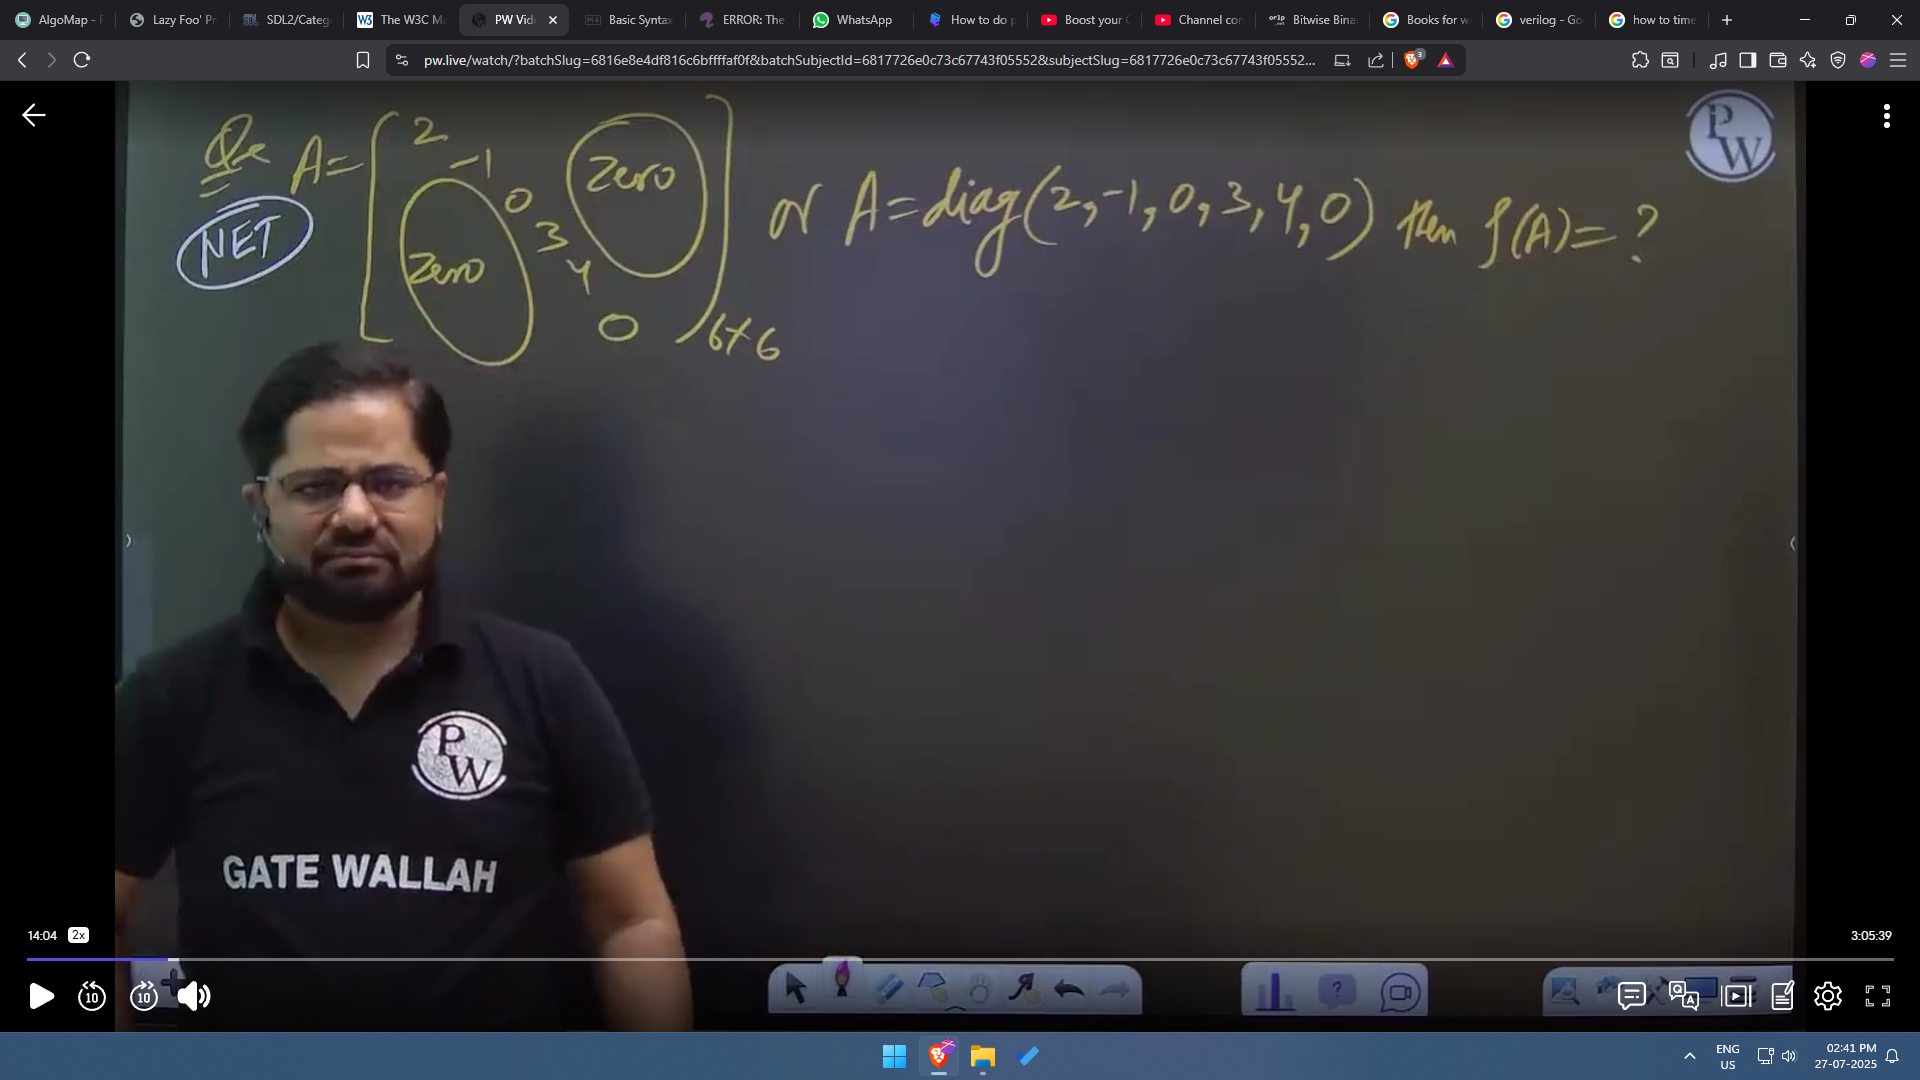 AlgoMap - F
Lazy Foo' Pr
SDL2/Categ
The W3C Ma
PW Vide
Basic Syntax
ERROR: The
WhatsApp
How to do p
Boost your C
Channel con
Bitwise Bina
Books for w
verilog - Go
how to time
pw.live/watch/?batchSlug=6816e8e4df816c6bffffaf0f&batchSubjectId=6817726e0c73c67743f05552&subjectSlug=6817726e0c73c67743f05552...
3
Qx A= [ 2
-1 zero
0
zero 3
4
0 ]6×6
or A=diag(2,-1,0,3,4,0) then ρ(A)= ?
NET
PW
PW
GATE WALLAH
14:04 2x
3:05:39
10
10
ENG
US
02:41 PM
27-07-2025